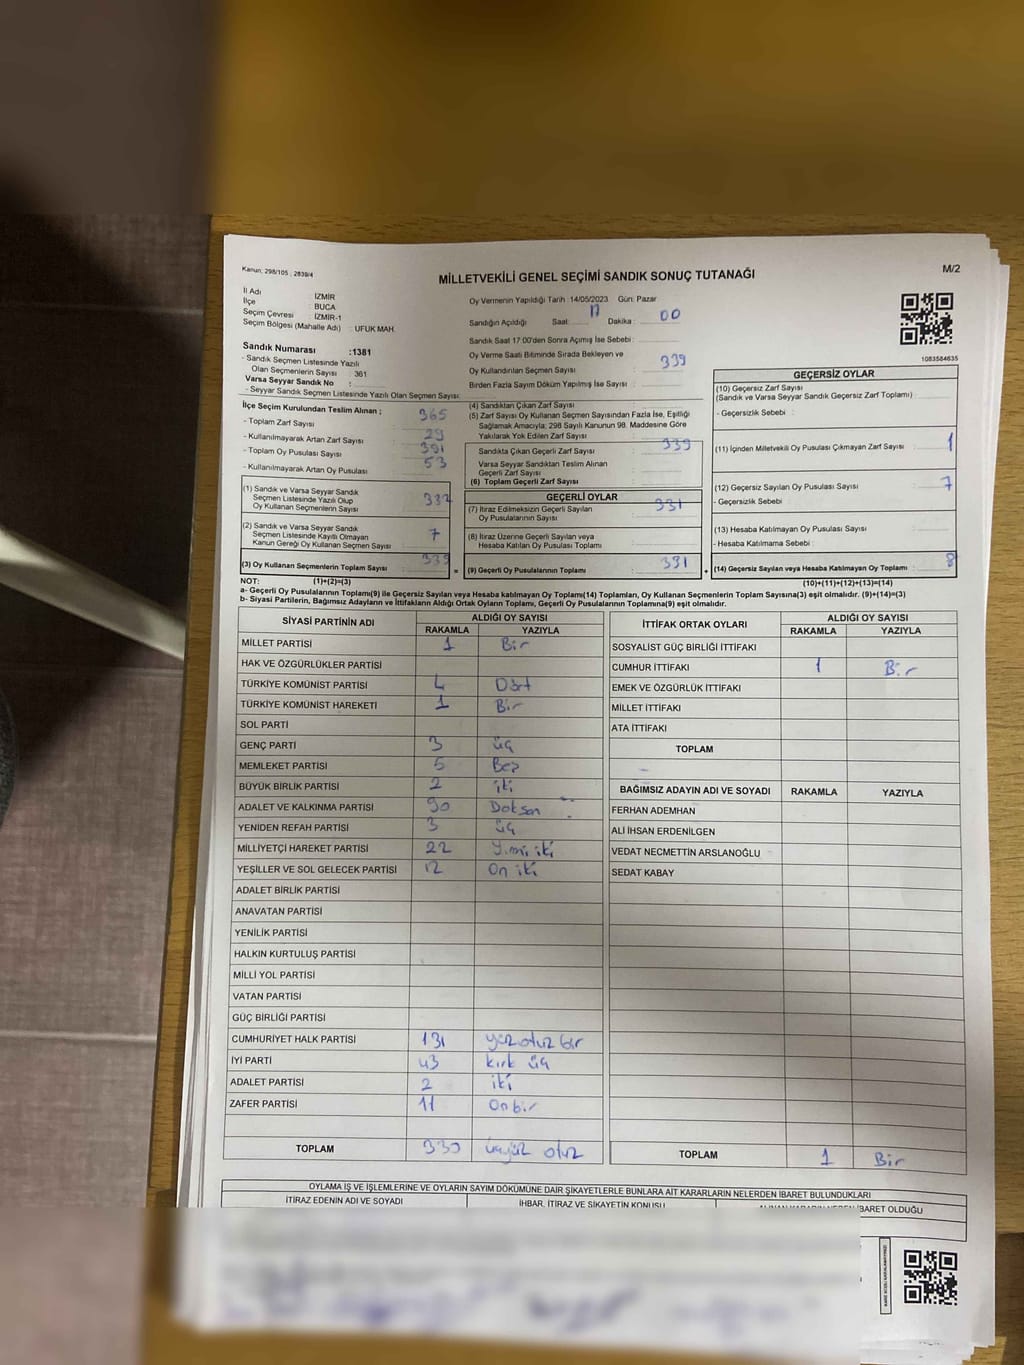 Kanun: 298/105 , 2839/4
MİLLETVEKİLİ GENEL SEÇİMİ SANDIK SONUÇ TUTANAĞI
M/2
İl Adı : İZMİR
İlçe : BUCA
Seçim Çevresi : İZMİR-1
Seçim Bölgesi (Mahalle Adı) : UFUK MAH.
Sandık Numarası :1381
- Sandık Seçmen Listesinde Yazılı
Olan Seçmenlerin Sayısı : 361
Varsa Seyyar Sandık No :
- Seyyar Sandık Seçmen Listesinde Yazılı Olan Seçmen Sayısı:
Oy Vermenin Yapıldığı Tarih :14/05/2023 Gün: Pazar
Sandığın Açıldığı Saat: 17 Dakika : 00
Sandık Saat 17:00'den Sonra Açımış İse Sebebi :
Oy Verme Saati Bitiminde Sırada Bekleyen ve
Oy Kullandırılan Seçmen Sayısı : 339
Birden Fazla Sayım Döküm Yapılmış İse Sayısı :
1083584635
İlçe Seçim Kurulundan Teslim Alınan ;
- Toplam Zarf Sayısı : 365
- Kullanılmayarak Artan Zarf Sayısı : 29
- Toplam Oy Pusulası Sayısı : 391
- Kullanılmayarak Artan Oy Pusulası : 53
(1) Sandık ve Varsa Seyyar Sandık
Seçmen Listesinde Yazılı Olup
Oy Kullanan Seçmenlerin Sayısı : 332
(2) Sandık ve Varsa Seyyar Sandık
Seçmen Listesinde Kayıtlı Olmayan
Kanun Gereği Oy Kullanan Seçmen Sayısı : 7
(3) Oy Kullanan Seçmenlerin Toplam Sayısı : 339
(4) Sandıktan Çıkan Zarf Sayısı :
(5) Zarf Sayısı Oy Kullanan Seçmen Sayısından Fazla İse, Eşitliği
Sağlamak Amacıyla; 298 Sayılı Kanunun 98. Maddesine Göre
Yakılarak Yok Edilen Zarf Sayısı :
Sandıkta Çıkan Geçerli Zarf Sayısı : 339
Varsa Seyyar Sandıktan Teslim Alınan
Geçerli Zarf Sayısı :
(6) Toplam Geçerli Zarf Sayısı :
GEÇERLİ OYLAR
(7) İtiraz Edilmeksizin Geçerli Sayılan
Oy Pusulalarının Sayısı : 331
(8) İtiraz Üzerine Geçerli Sayılan veya
Hesaba Katılan Oy Pusulası Toplamı :
= (9) Geçerli Oy Pusulalarının Toplamı : 331 +
GEÇERSİZ OYLAR
(10) Geçersiz Zarf Sayısı
(Sandık ve Varsa Seyyar Sandık Geçersiz Zarf Toplamı) :
- Geçersizlik Sebebi :
(11) İçinden Milletvekili Oy Pusulası Çıkmayan Zarf Sayısı : 1
(12) Geçersiz Sayılan Oy Pusulası Sayısı : 7
- Geçersizlik Sebebi :
(13) Hesaba Katılmayan Oy Pusulası Sayısı :
- Hesaba Katılmama Sebebi :
(14) Geçersiz Sayılan veya Hesaba Katılmayan Oy Toplamı : 8
NOT: (1)+(2)=(3)
(10)+(11)+(12)+(13)=(14)
a- Geçerli Oy Pusulalarının Toplamı(9) ile Geçersiz Sayılan veya Hesaba katılmayan Oy Toplamı(14) Toplamları, Oy Kullanan Seçmenlerin Toplam Sayısına(3) eşit olmalıdır. (9)+(14)=(3)
b- Siyasi Partilerin, Bağımsız Adayların ve İttifakların Aldığı Ortak Oyların Toplamı, Geçerli Oy Pusulalarının Toplamına(9) eşit olmalıdır.
SİYASİ PARTİNİN ADI ALDIĞI OY SAYISI
RAKAMLA YAZIYLA
MİLLET PARTİSİ 1 Bir
HAK VE ÖZGÜRLÜKLER PARTİSİ
TÜRKİYE KOMÜNİST PARTİSİ 4 Dört
TÜRKİYE KOMÜNİST HAREKETİ 1 Bir
SOL PARTİ
GENÇ PARTİ 3 üç
MEMLEKET PARTİSİ 5 Beş
BÜYÜK BİRLİK PARTİSİ 2 iki
ADALET VE KALKINMA PARTİSİ 90 Doksan
YENİDEN REFAH PARTİSİ 3 üç
MİLLİYETÇİ HAREKET PARTİSİ 22 Yirmi iki
YEŞİLLER VE SOL GELECEK PARTİSİ 12 On iki
ADALET BİRLİK PARTİSİ
ANAVATAN PARTİSİ
YENİLİK PARTİSİ
HALKIN KURTULUŞ PARTİSİ
MİLLİ YOL PARTİSİ
VATAN PARTİSİ
GÜÇ BİRLİĞİ PARTİSİ
CUMHURİYET HALK PARTİSİ 131 yüz otuz bir
İYİ PARTİ 43 kırk üç
ADALET PARTİSİ 2 iki
ZAFER PARTİSİ 11 Onbir
TOPLAM 330 üçyüz otuz
İTTİFAK ORTAK OYLARI ALDIĞI OY SAYISI
RAKAMLA YAZIYLA
SOSYALİST GÜÇ BİRLİĞİ İTTİFAKI
CUMHUR İTTİFAKI 1 Bir
EMEK VE ÖZGÜRLÜK İTTİFAKI
MİLLET İTTİFAKI
ATA İTTİFAKI
TOPLAM
BAĞIMSIZ ADAYIN ADI VE SOYADI RAKAMLA YAZIYLA
FERHAN ADEMHAN
ALİ İHSAN ERDENİLGEN
VEDAT NECMETTİN ARSLANOĞLU
SEDAT KABAY
TOPLAM 1 Bir
OYLAMA İŞ VE İŞLEMLERİNE VE OYLARIN SAYIM DÖKÜMÜNE DAİR ŞİKAYETLERLE BUNLARA AİT KARARLARIN NELERDEN İBARET BULUNDUKLARI
İTİRAZ EDENİN ADI VE SOYADI İHBAR, İTİRAZ VE ŞİKAYETİN KONUSU İBARET OLDUĞU